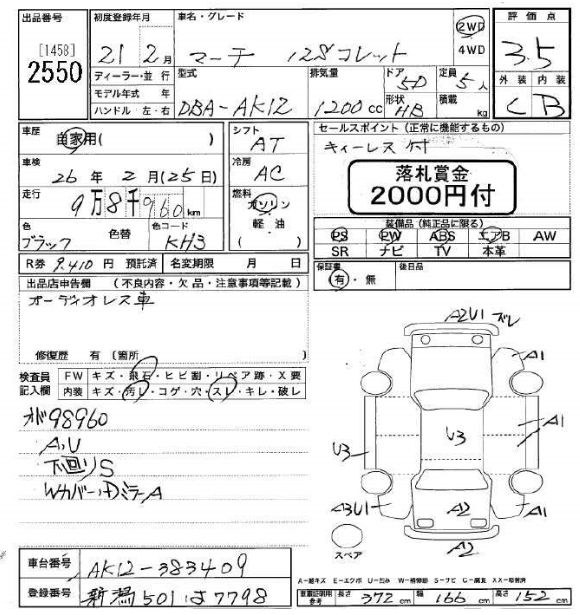 出品番号
[1458]
2550
初度登録年月
21 2月
ディーラー・並行
モデル年式 年
ハンドル 左・右
車名・グレード
マーチ 12Sコレット
2WD
4WD
型式
DBA-AK12
排気量
1200cc
ドア
5D
形状
HB
定員
5人
積載
kg
評価点
3.5
外装 内装
C B
車歴
自家用( )
車検
26年2月(25日)
走行
9万8千960km
色
ブラック
色替
色コード
KH3
シフト
AT
冷房
AC
燃料
ガソリン
軽・油
( )
セールスポイント(正常に機能するもの)
キィーレス付
落札賞金
2000円付
装備品(純正品に限る)
PS PW ABS エアB AW
SR ナビ TV 本革
R券 9,410円 預託済 名変期限 月 日
保証書
有・無
後日品
出品店申告欄 (不良内容・欠品・注意事項等記載)
オーディオレス車
修復歴 有 [箇所 ]
検査員
記入欄
FW キズ・飛石・ヒビ割・リペア跡・X要
内装 キズ・汚レ・コゲ・穴・スレ・キレ・破レ
オドメ98960
A,U
下回りS
Wカバー・DミラーA
A2U1 ズレ
A1
A1
U3
U3
A3U1
A2
A1
A2
スペア
A-線キズ E-エクボ U-凹み W-補修跡 S-サビ C-腐食 XX-取替済
車台番号
AK12-383409
登録番号
新潟501は7798
車検証明用
参考
長さ 372cm 幅 166cm 高さ 152cm